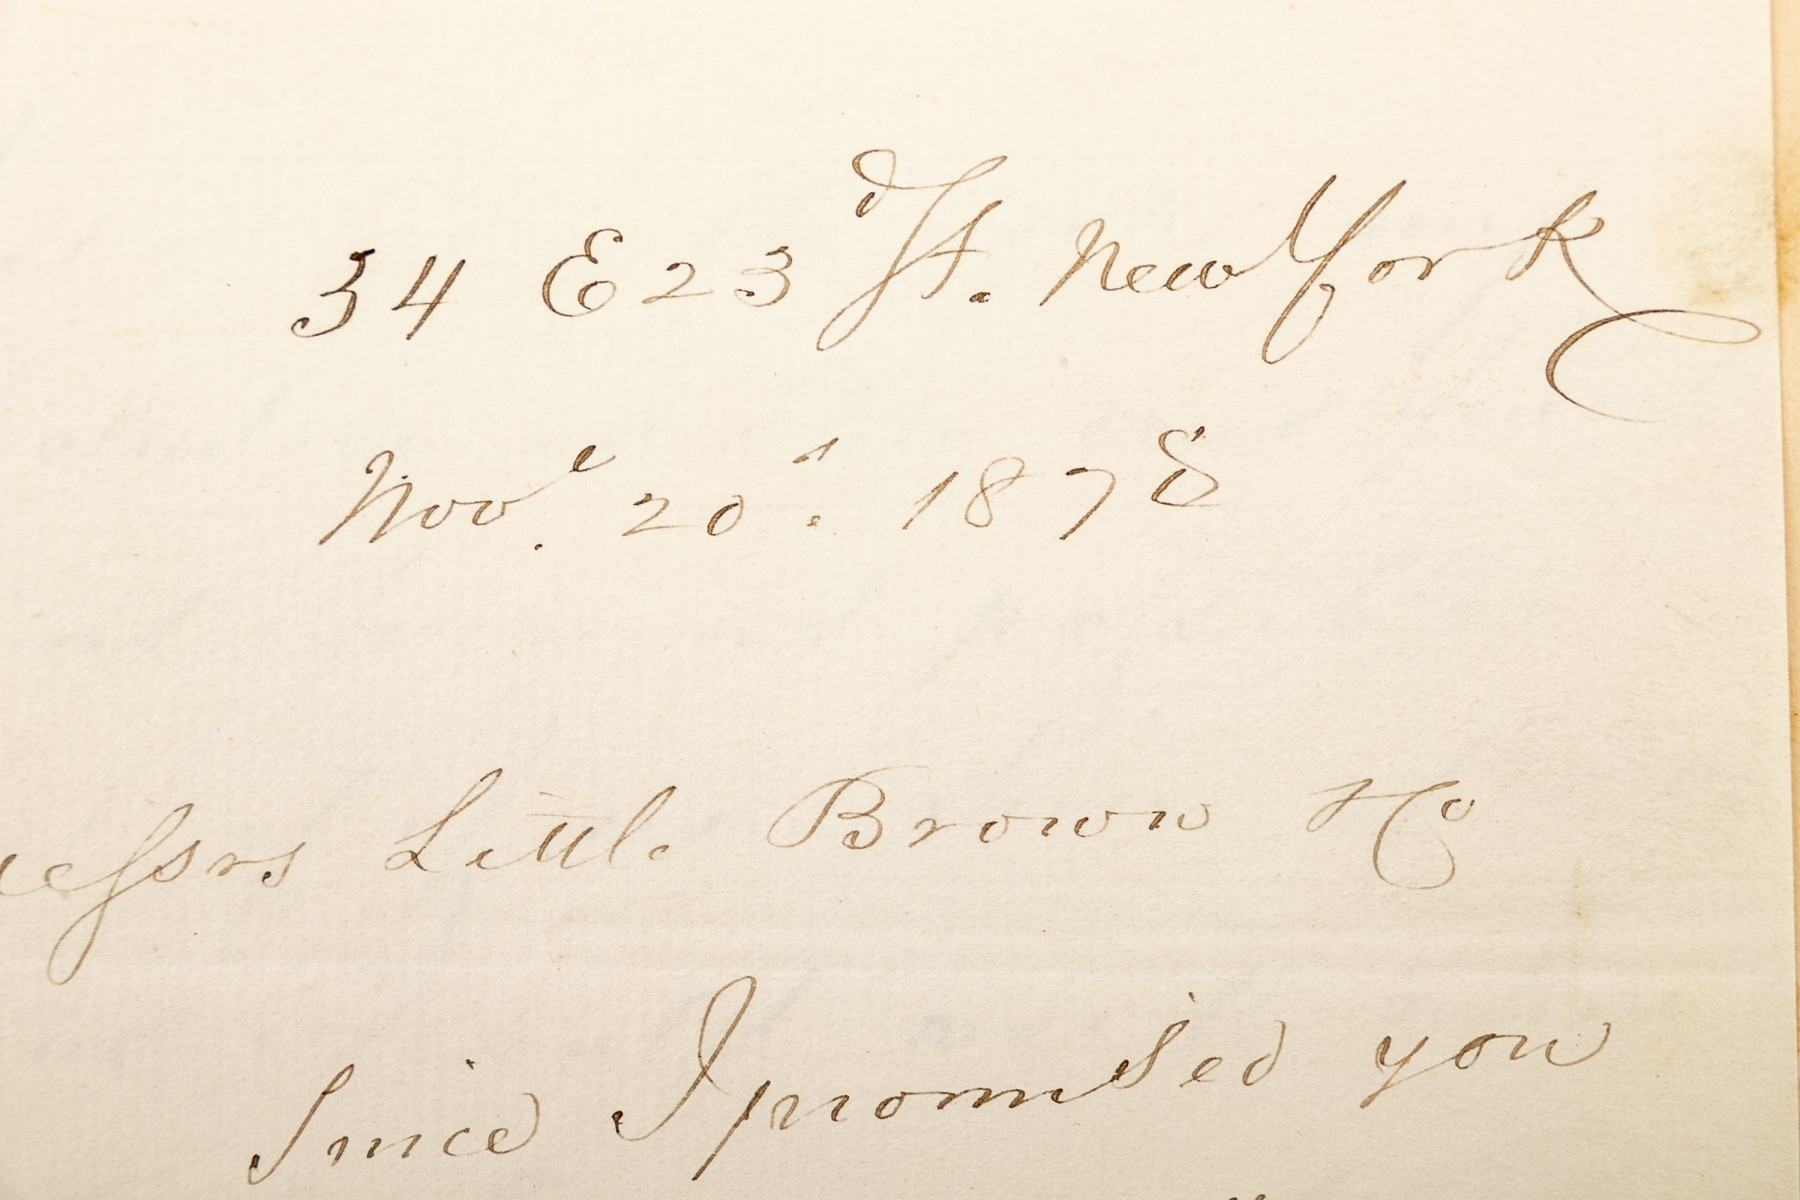 34 E 23d St. New York
Nove. 20. 1878
Messrs Little Brown & Co
Since I promised you